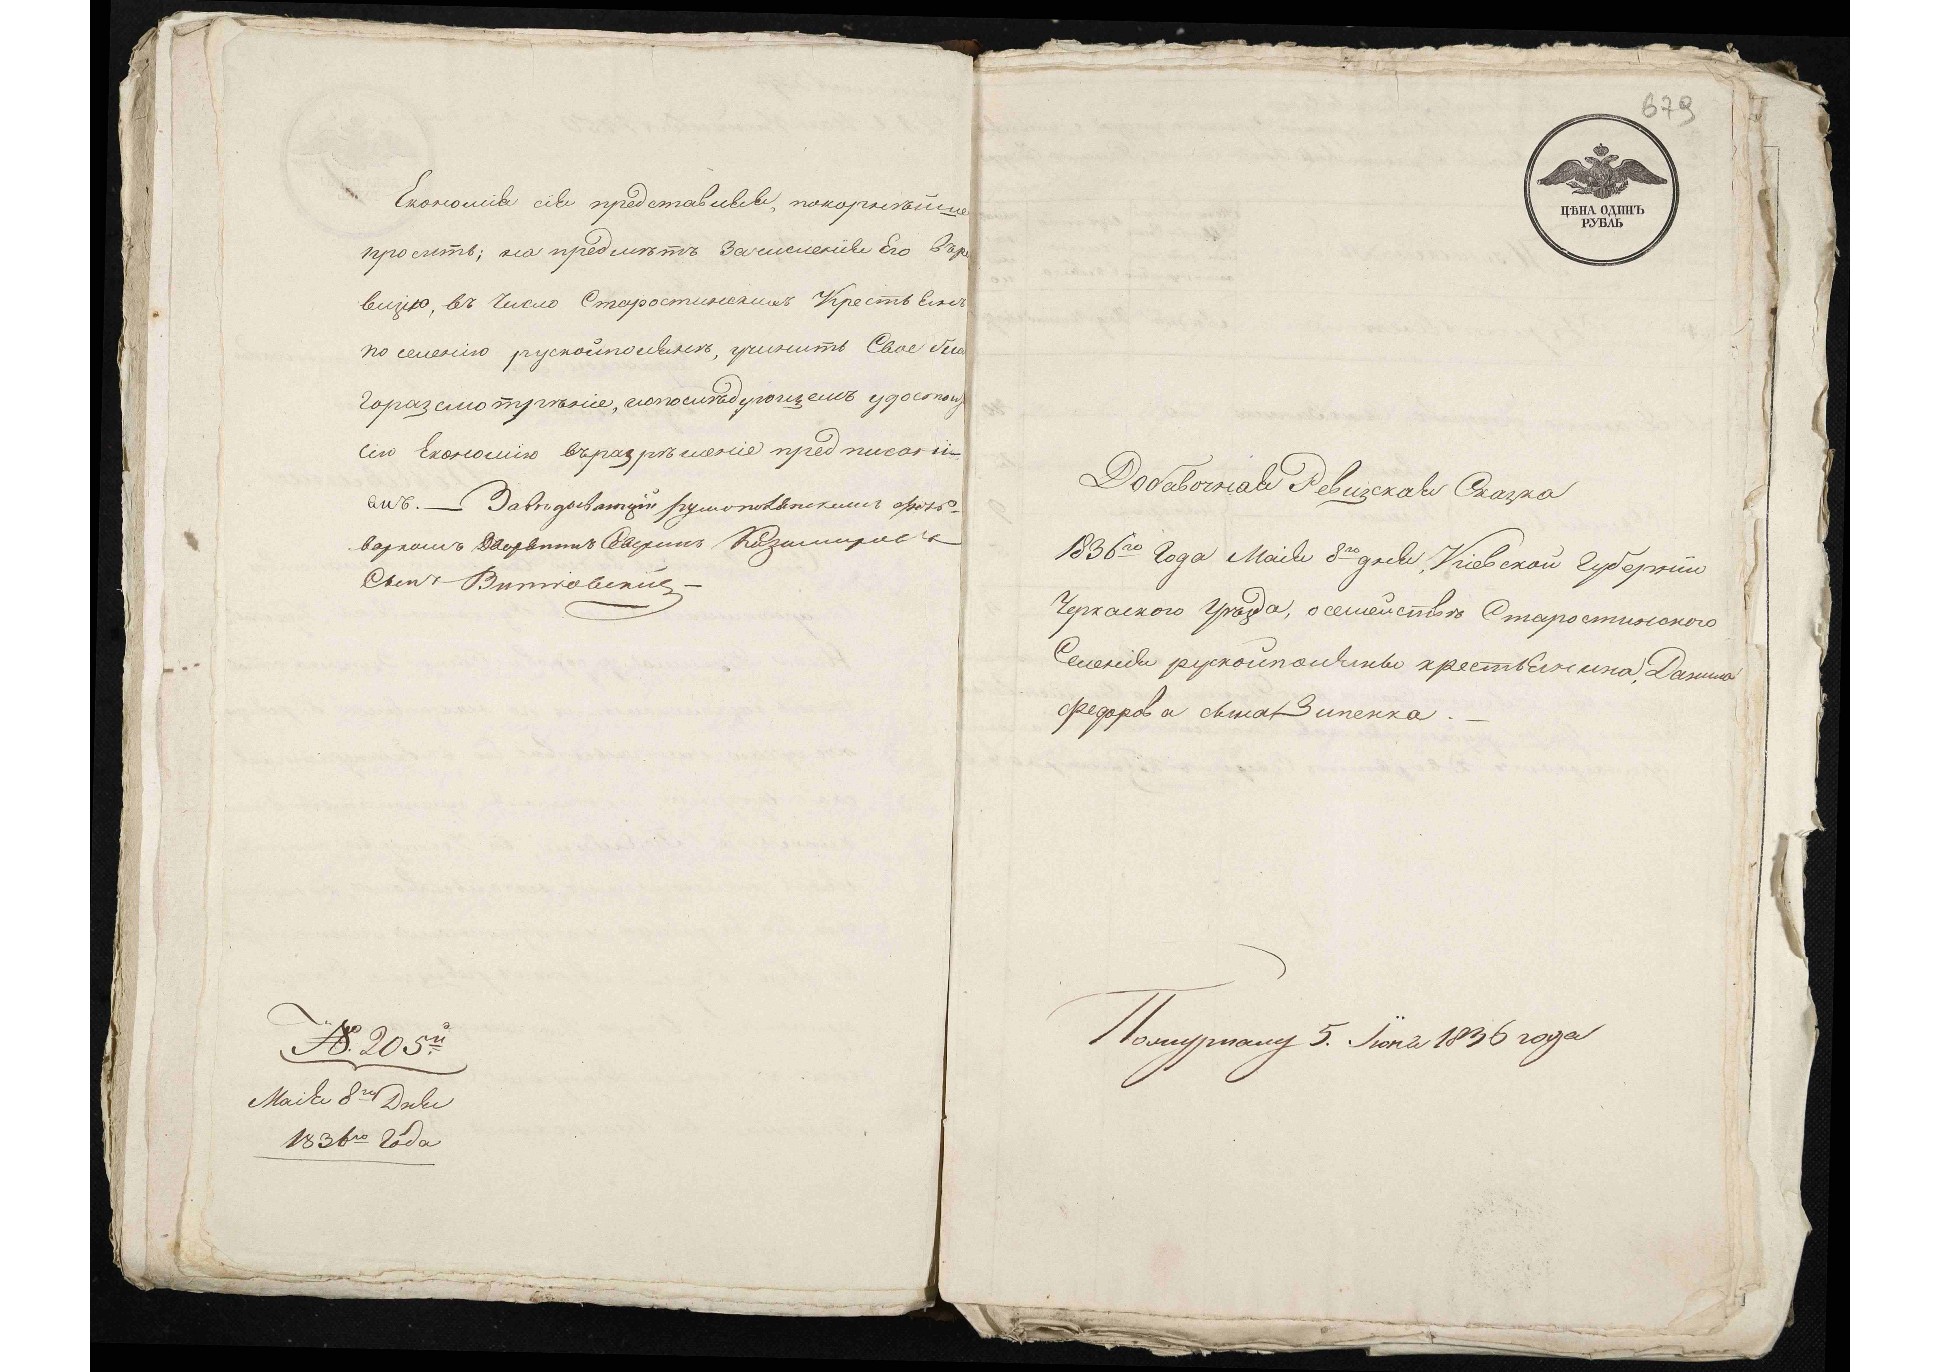 Економія сія представляя, покорнѣйше
проситъ; на предмѣтъ Зачисленія Его въре
визію, въ Число Старостинскихъ Крестьянъ
по селенію рускойполянѣ, учинить Свое бла
горазсмотрѣніе, ипослѣдующемъ удостоить
сію Економію въразрѣшеніе предписані
емъ. — Завѣдывающій русскополянскимъ фоль-
варкомъ Дворянинъ Северинъ Казимировъ
Сынъ Витковскій —
№ 205й
Маія 8го Дня
1836го Года
679
ЦѢНА ОДИНЪ
РУБЛЬ
Добавочная Ревизская Сказка
1836го Года Маія 8го дня, Кіевской Губерніи
Черкаского Уѣзда, о семействѣ Старостинского
Селенія рускойполяны крестьянина, Данила
Федорова сына Зипенка. —
5. Іюня 1836 года